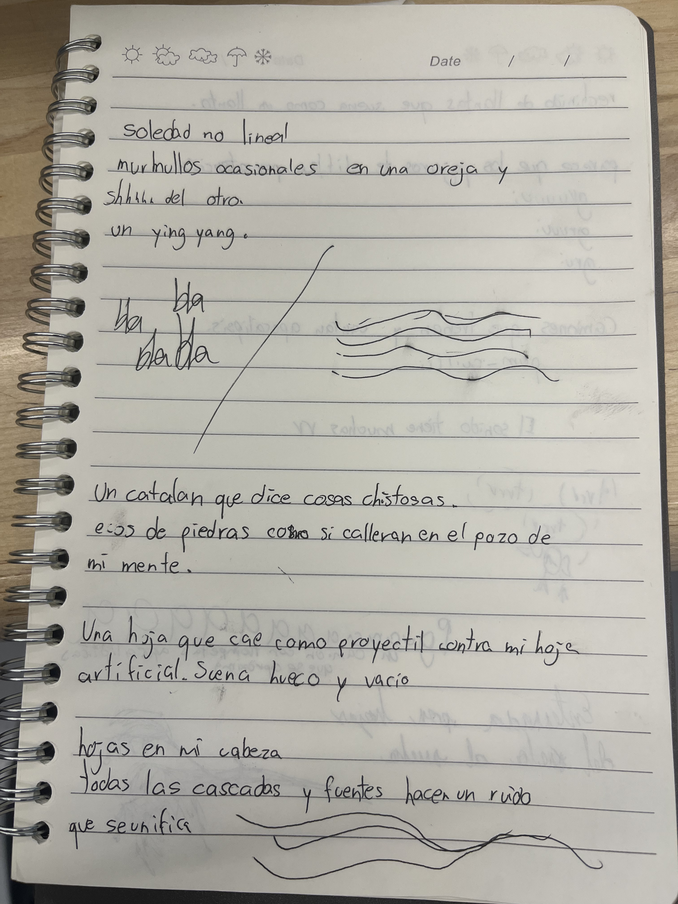 Date / /
soledad no lineal
murmullos ocasionales en una oreja y
shhhh del otro.
un ying yang.
bla
bla
bla bla
Un catalan que dice cosas chistosas.
ecos de piedras como si calleran en el pozo de
mi mente.
Una hoja que cae como proyectil contra mi hoja
artificial. Suena hueco y vacio
hojas en mi cabeza
todas las cascadas y fuentes hacen un ruido
que se unifica